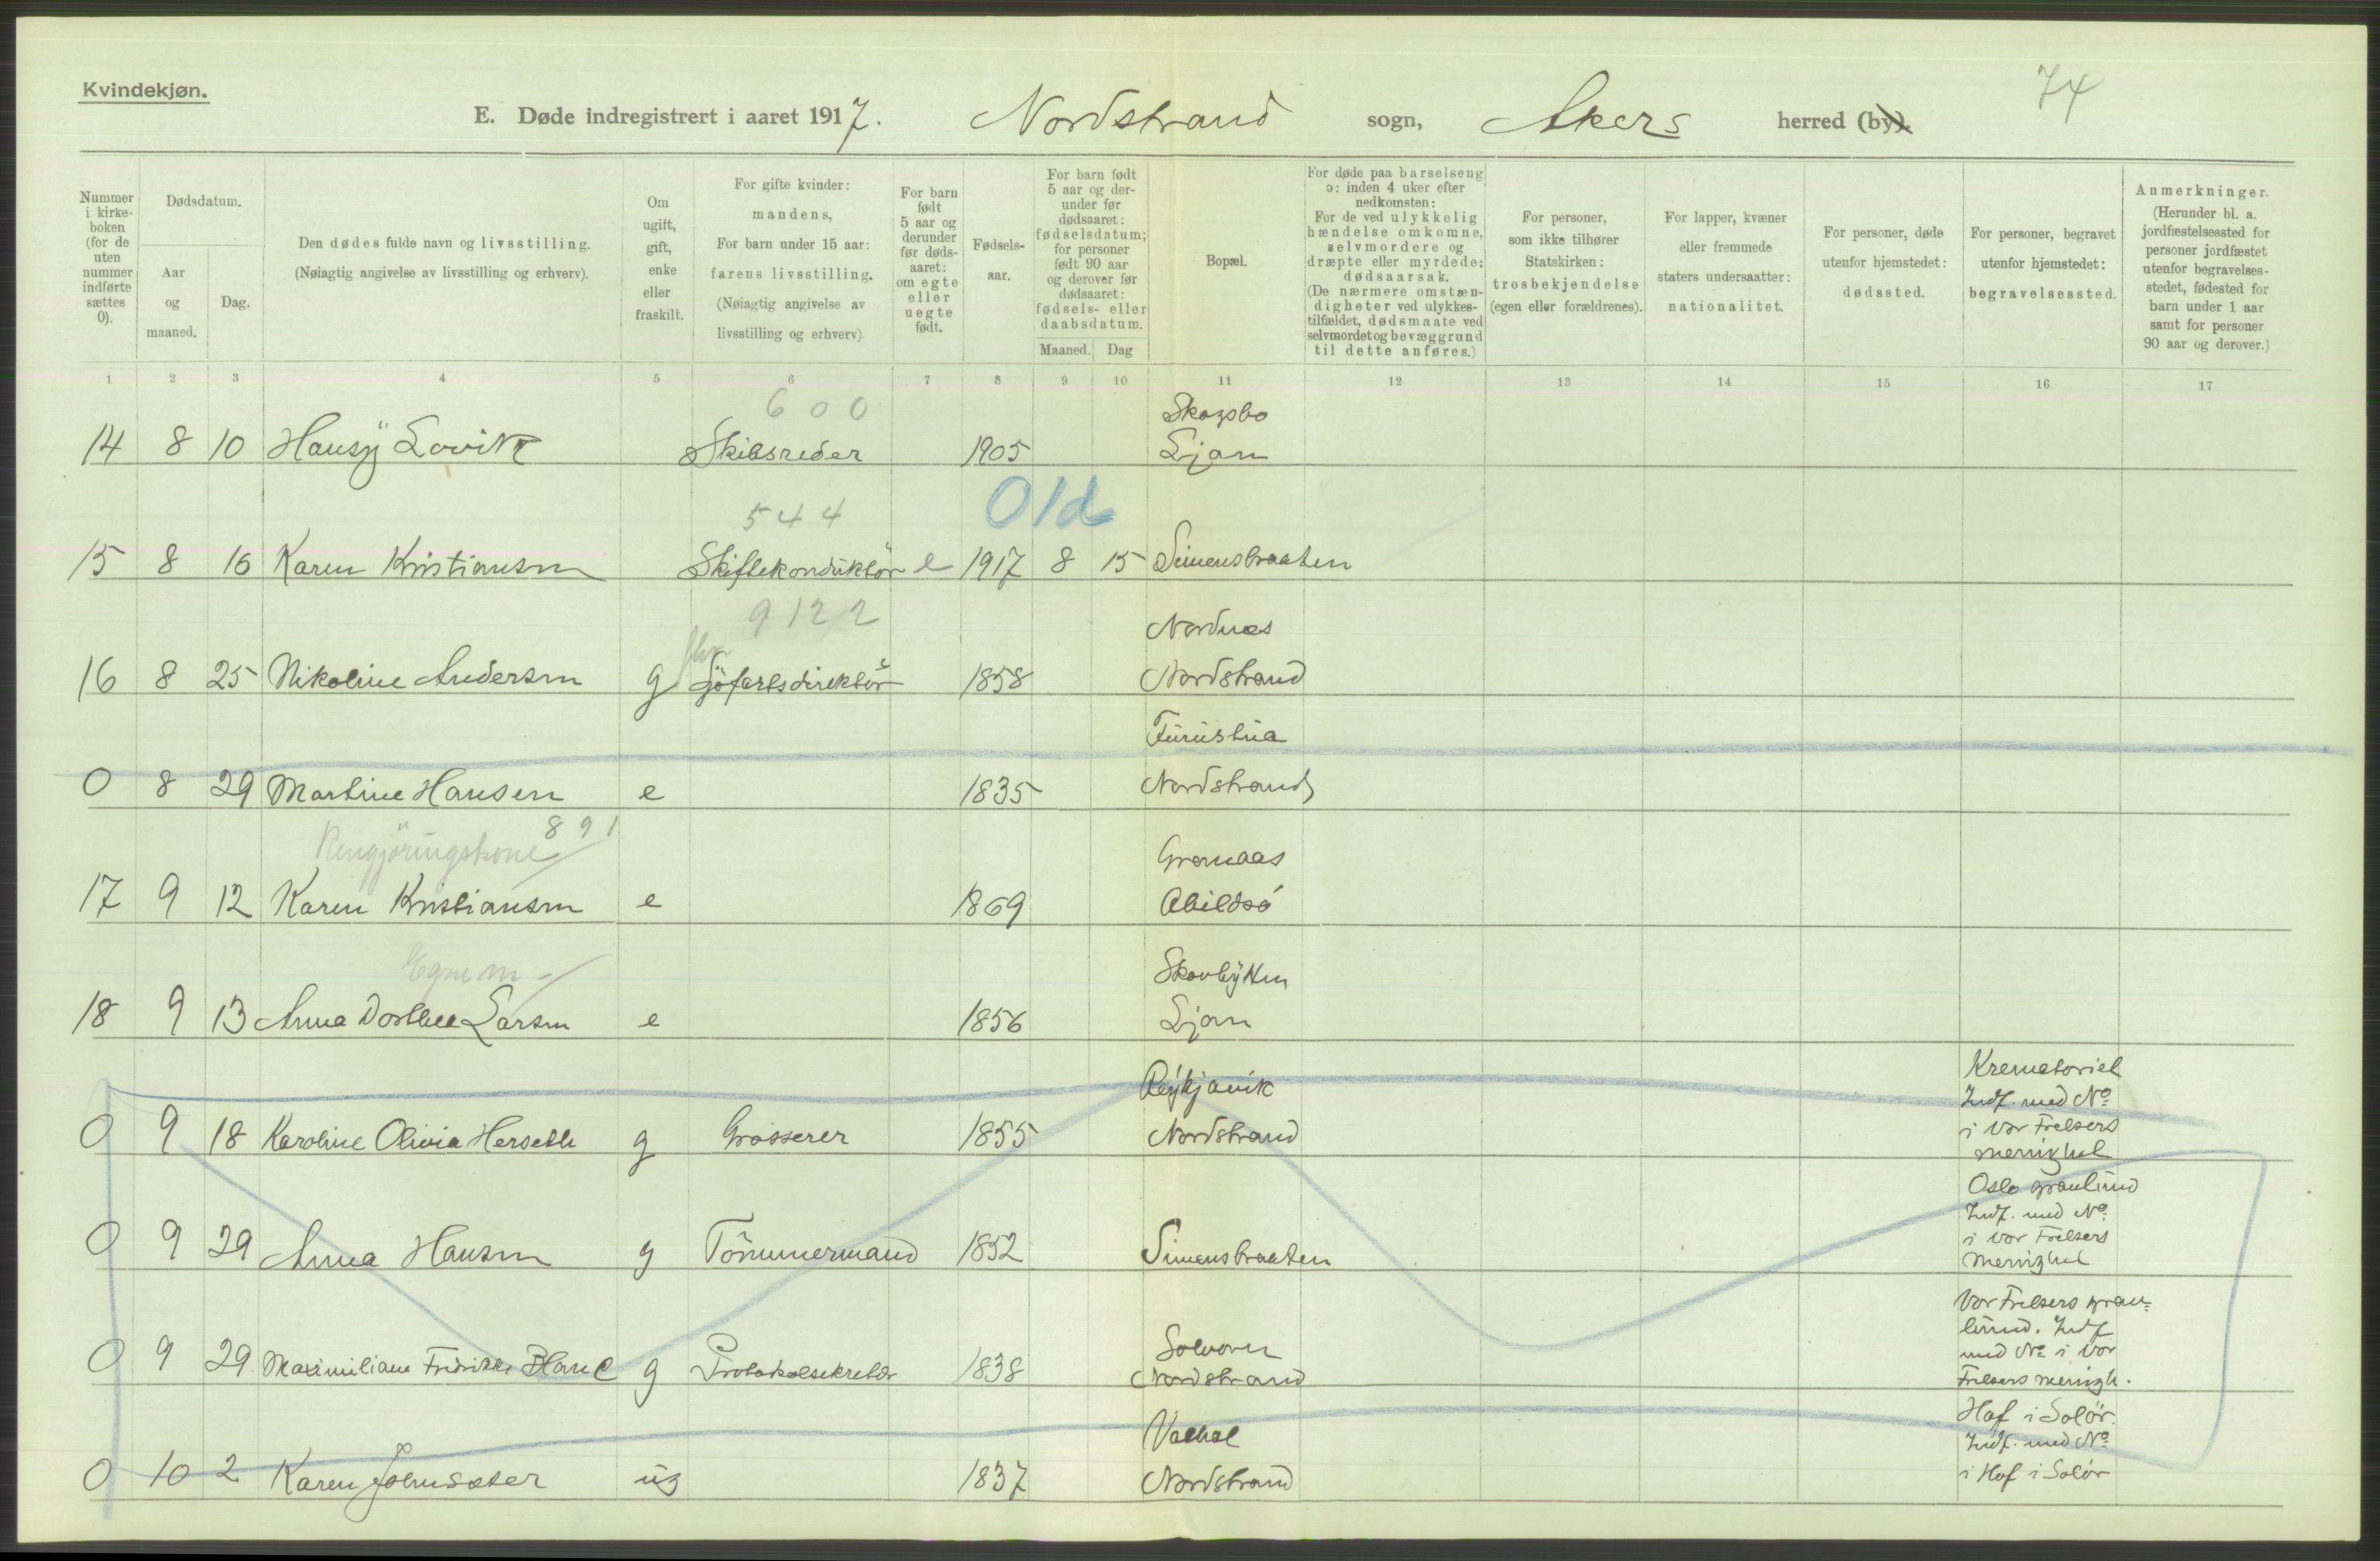 Kvindekjøn.
74
E. Døde indregistrert i aaret 1917. Nordstrand sogn, Akers herred (by).
Nummer i kirke-boken (for de uten nummer indførte sættes 0).
Dødsdatum.
Aar og maaned.
Dag.
Den dødes fulde navn og livsstilling.
(Nøiagtig angivelse av livsstilling og erhverv).
Om ugift, gift, enke eller fraskilt.
For gifte kvinder: mandens, For barn under 15 aar: farens livsstilling. (Nøiagtig angivelse av livsstilling og erhverv)
For barn født 5 aar og derunder før døds-aaret: om egte eller uegte født.
Fødsels-aar.
For barn født 5 aar og der-under før dødsaaret: fødselsdatum; for personer født 90 aar og derover før dødsaaret: fødsels- eller daabsdatum.
Maaned. Dag
Bopæl.
For døde paa barselseng ɔ: inden 4 uker efter nedkomsten: For de ved ulykkelig hændelse omkomne, selvmordere og dræpte eller myrdede: dødsaarsak. (De nærmere omstæn-digheter ved ulykkes-tilfældet, dødsmaate ved selvmordet og bevæggrund til dette anføres.)
For personer, som ikke tilhører Statskirken: trosbekjendelse (egen eller forældrenes).
For lapper, kvæner eller fremmede staters undersaatter: nationalitet.
For personer, døde utenfor hjemstedet: dødssted.
For personer, begravet utenfor hjemstedet: begravelsessted.
Anmerkninger. (Herunder bl. a. jordfæstelsessted for personer jordfæstet utenfor begravelses-stedet, fødested for barn under 1 aar samt for personer 90 aar og derover.)
1 2 3 4 5 6 7 8 9 10 11 12 13 14 15 16 17
600 Skogsbo
14 8 10 Hansÿ Lovik Skibsreder 1905 Ljan
544 01d
15 8 16 Karen Kristiansen Skiftekonduktör e 1917 8 15 Simensbraaten
9122 Nordnes
16 8 25 Nikoline Andersen g Sjöfartsdirektör 1858 Nordstrand
Furustua
0 8 29 Martine Hansen e 1835 Nordstrand
Rengjöringskone 891 Grønaas
17 9 12 Karen Kristiansen e 1869 Abildsö
Egne m Skovbÿkken
18 9 13 Anna Dorthea Larsen e 1856 Ljan
Reÿkjavik Krematoriet
Indf. med No
0 9 18 Karoline Olivia Herseth g Grosserer 1855 Nordstrand i Vor Frelsers
menighet
Oslo gravlund
Indf. med No
0 9 29 Anna Hansen g Tömmermand 1852 Simensbraaten i Vor Frelsers
Menighet
Vor Frelsers grav-
lund. Indf
Solvorn med No i Vor
0 9 29 Maximiliane Fredrikke Blanc g Protokolsekretær 1838 Nordstrand Frelsers menigh.
Valhal Hof i Solör.
Indf. med No
0 10 2 Karen Johnsæter ug 1837 Nordstrand i Hof i Solör